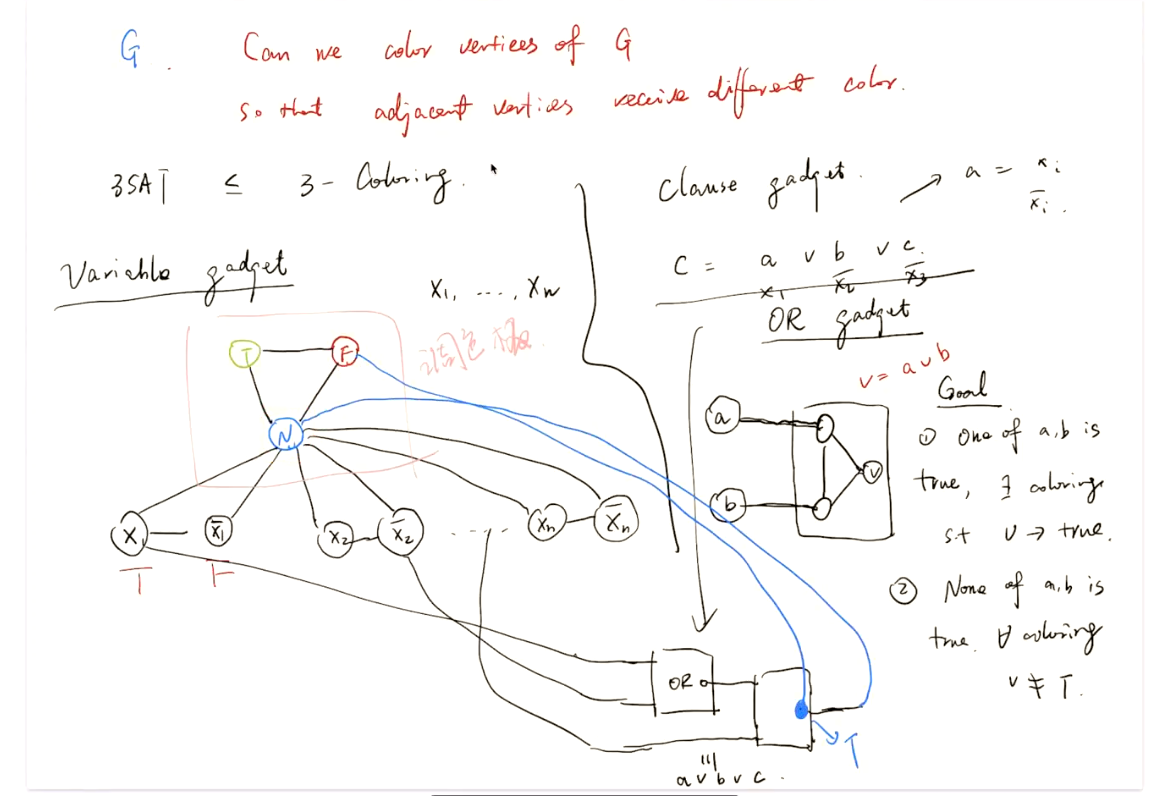 G. Can we color vertices of G
so that adjacent vertices receive different color.
3SAT ≤ 3-Coloring.
Variable gadget
X₁, ...., Xn
T F
调色板
N
X₁ x̄₁ X₂ X̄₂ .... Xn X̄n
T F
Clause gadget. → a = xi
x̄i.
C = a ∨ b ∨ c.
x₁ x̄₂ x̄₃
OR gadget
v = a ∪ b
a
b
v
Goal
① One of a,b is
true, ∃ coloring
s.t v → true.
② None of a,b is
true. ∀ coloring
v ≠ T.
OR
T
a ∨ b ∨ c.